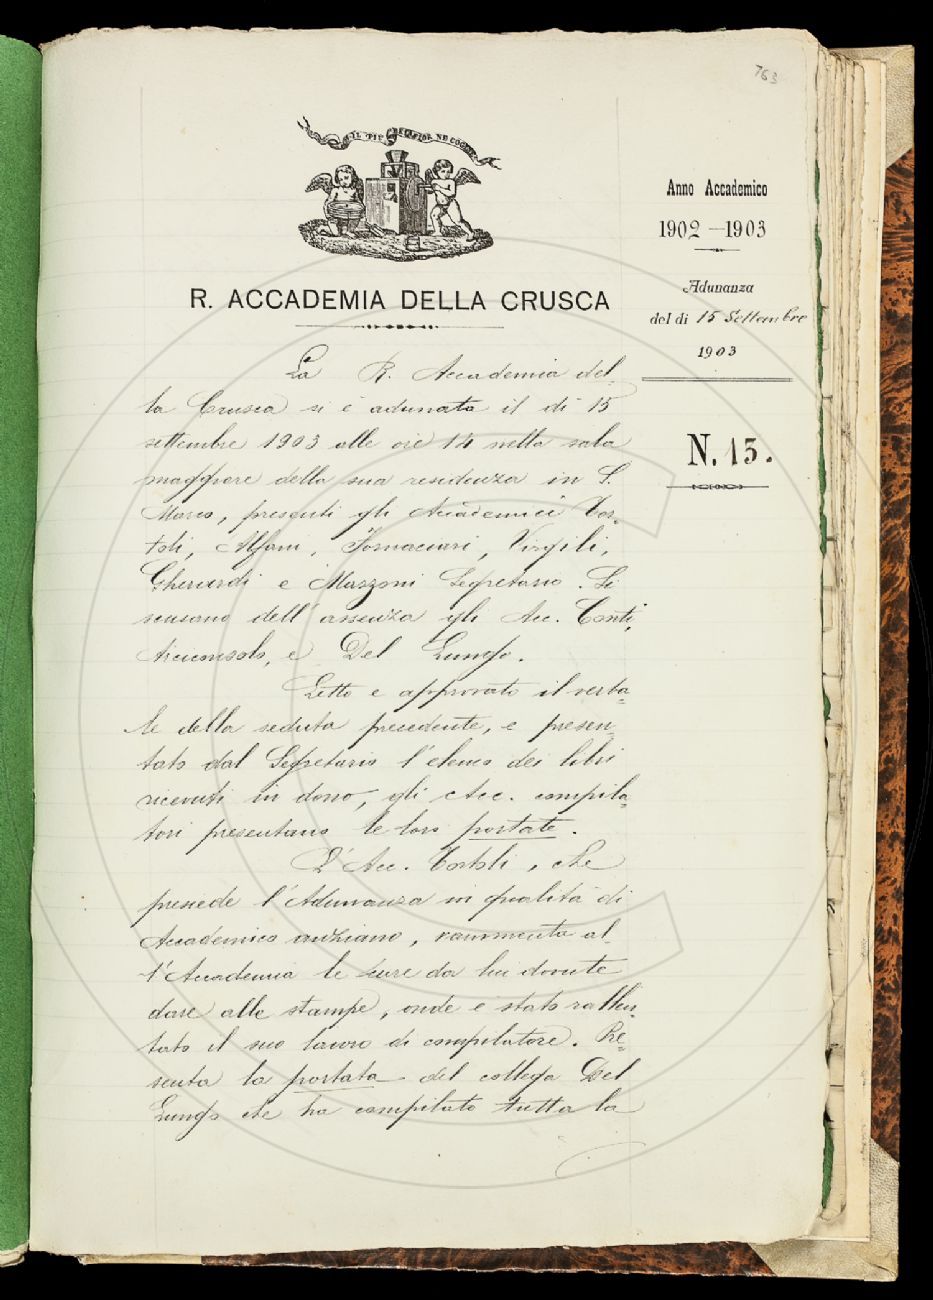 763
IL PIÙ BEL FIOR NE COGLIE
Anno Accademico
1902—1903
Adunanza
del dì 15 Settembre
1903
N. 15.
R. ACCADEMIA DELLA CRUSCA
La R. Accademia del-
la Crusca si è adunata il dì 15
settembre 1903 alle ore 14 nella sala
maggiore della sua residenza in S.
Marco, presenti gli Accademici Tor-
toli, Alfani, Fornaciari, Virgili,
Gherardi e Mazzoni Segretario. Si
scusano dell'assenza gli Acc. Conti,
Arciconsolo, e Del Lungo.
Letto e approvato il verba-
le della seduta precedente, e presen-
tato dal Segretario l'elenco dei libri
ricevuti in dono, gli Acc. compila-
tori presentano le loro portate.
L'Acc. Tortoli, che
presiede l'Adunanza in qualità di
Accademico anziano, rammenta al-
l'Accademia le cure da lui dovute
dare alle stampe, onde è stato rallen-
tato il suo lavoro di compilatore. Pre-
senta la portata del collega Del
Lungo che ha compilato tutta la